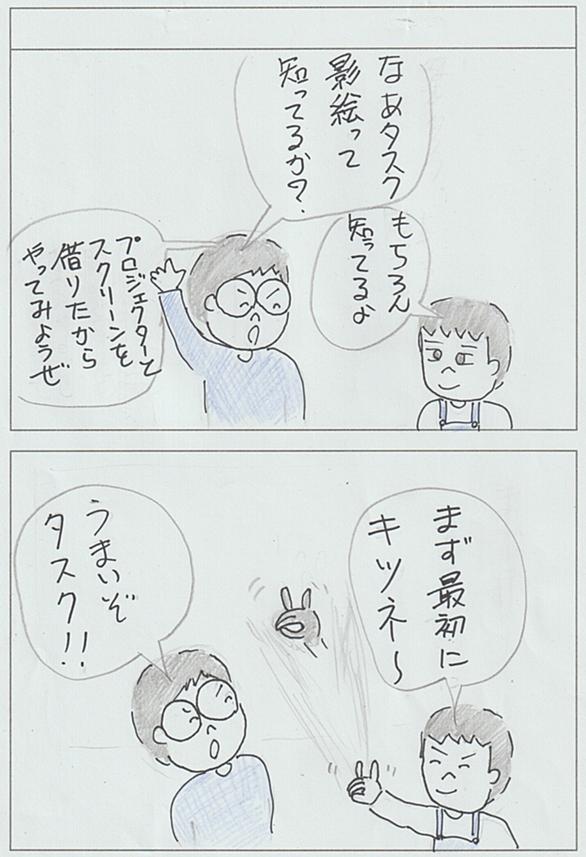 なあタスク
影絵って
知ってるか?
もちろん
知ってるよ
プロジェクターと
スクリーンを
借りたから
やってみようぜ
まず最初に
キツネ～
うまいぞ
タスク!!